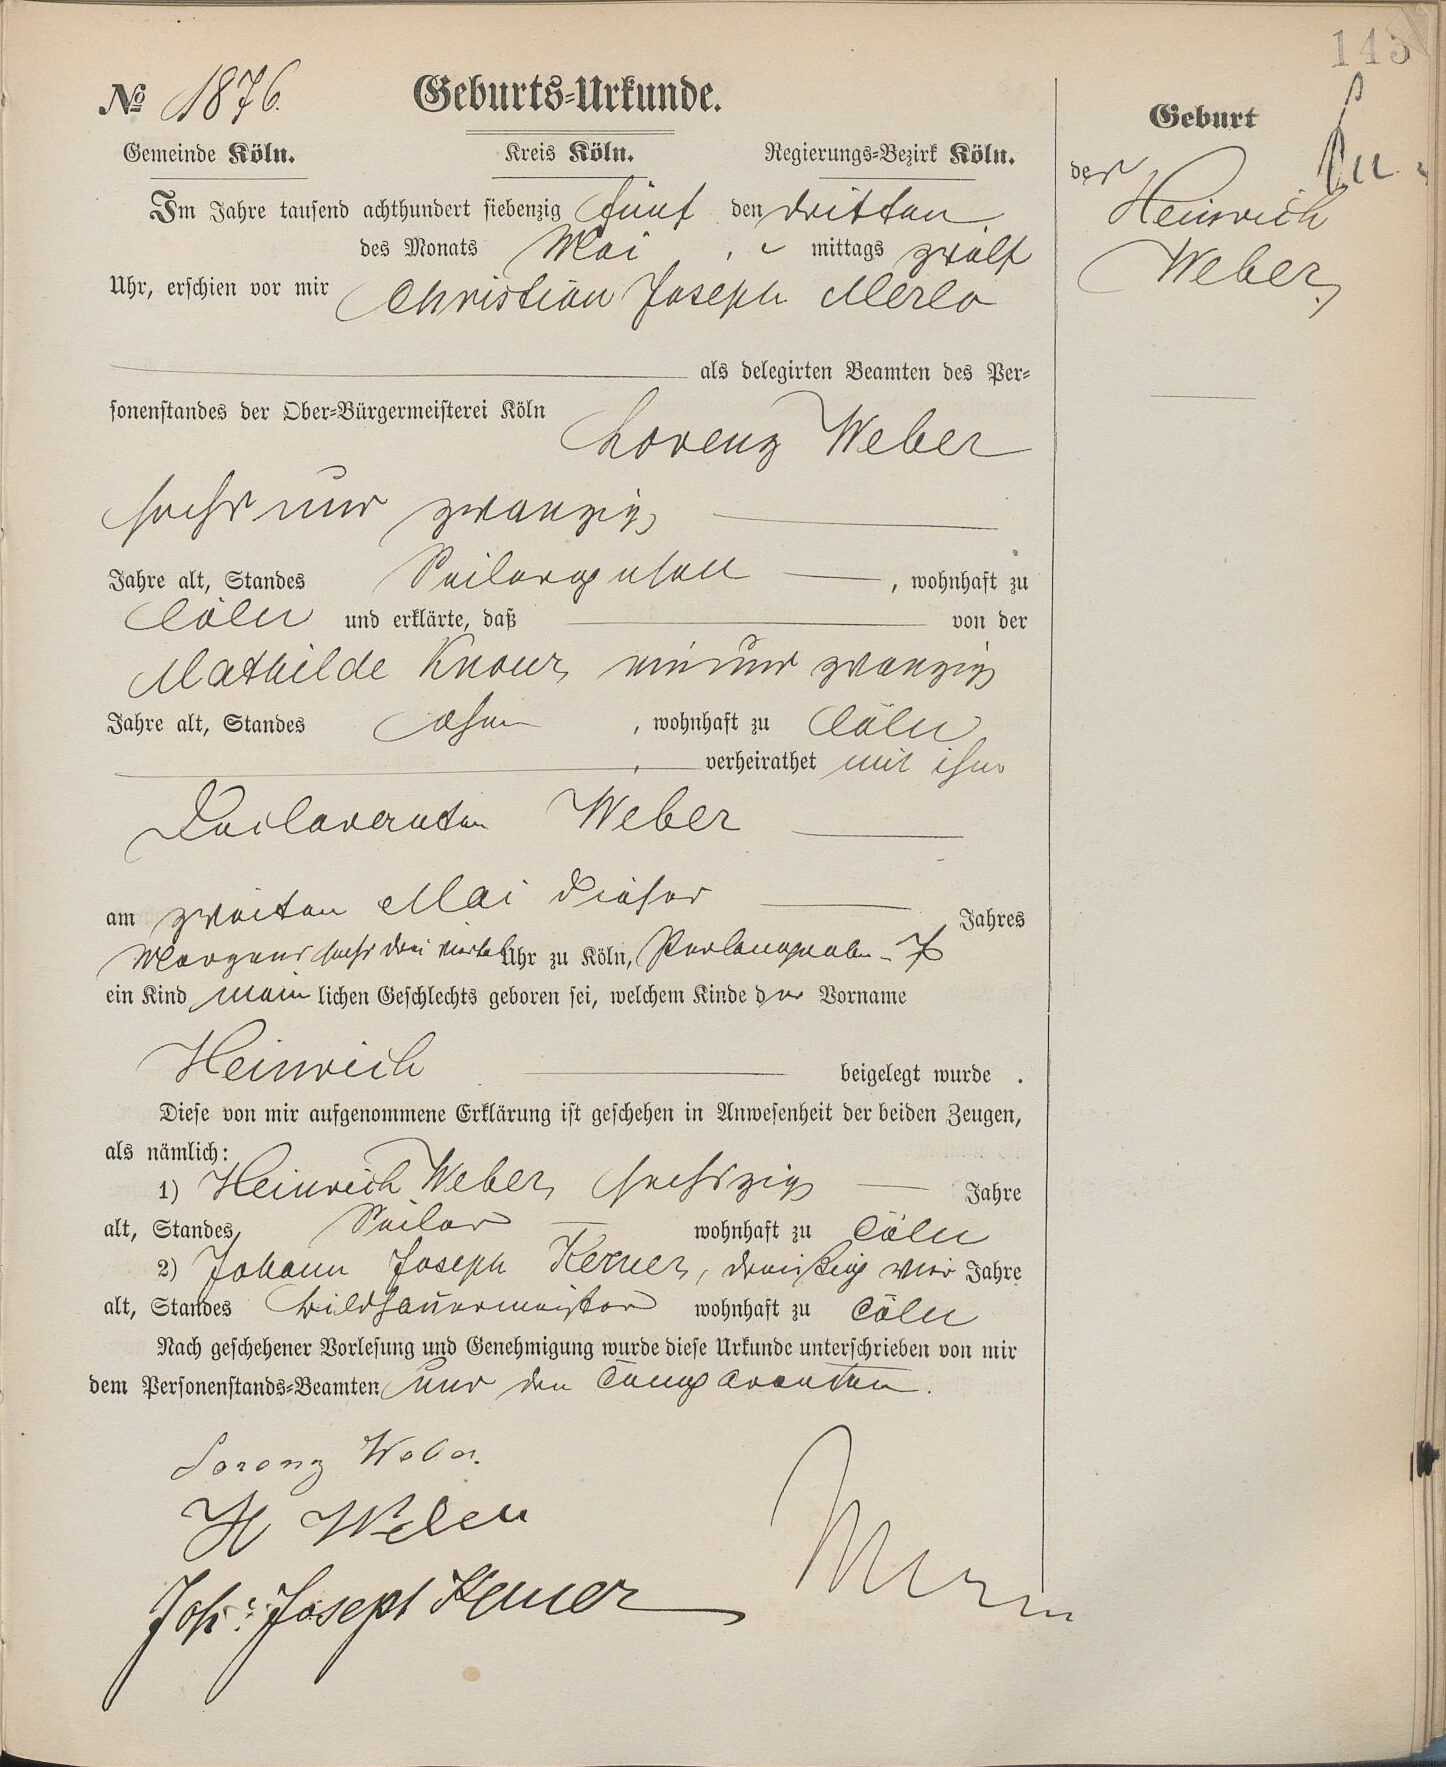 143
№ 1876.
Geburts-Urkunde.
Gemeinde Köln. Kreis Köln. Regierungs-Bezirk Köln.
Geburt
des
Heinrich
Weber,
Im Jahre tausend achthundert siebenzig fünf den dritten
des Monats Mai mittags zwölf
Uhr, erschien vor mir Christian Joseph Merlo
als delegirten Beamten des Per-
sonenstandes der Ober-Bürgermeisterei Köln
Lorenz Weber
sechs und zwanzig
Jahre alt, Standes Seilergesell, wohnhaft zu
Cöln und erklärte, daß von der
Mathilde Knour, ein und zwanzig
Jahre alt, Standes ohne, wohnhaft zu Cöln
, verheirathet mit ihm
Declaranten Weber
am zweiten Mai dieses Jahres
Morgens sechs drei viertel Uhr zu Köln, Perlengraben 7
ein Kind männlichen Geschlechts geboren sei, welchem Kinde der Vorname
Heinrich beigelegt wurde .
Diese von mir aufgenommene Erklärung ist geschehen in Anwesenheit der beiden Zeugen,
als nämlich:
1) Heinrich Weber, sechszig Jahre
alt, Standes Seiler wohnhaft zu Cöln
2) Johann Joseph Kerner, dreißig vier Jahre
alt, Standes Bildhauermeister wohnhaft zu Cöln
Nach geschehener Vorlesung und Genehmigung wurde diese Urkunde unterschrieben von mir
dem Personenstands-Beamten und den Comparenten.
Lorenz Weber.
H Weber
Joh: Joseph Kerner